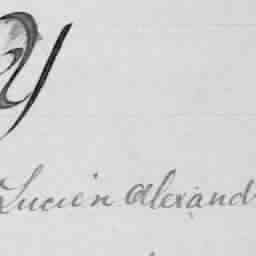 y
Lucien Alexand